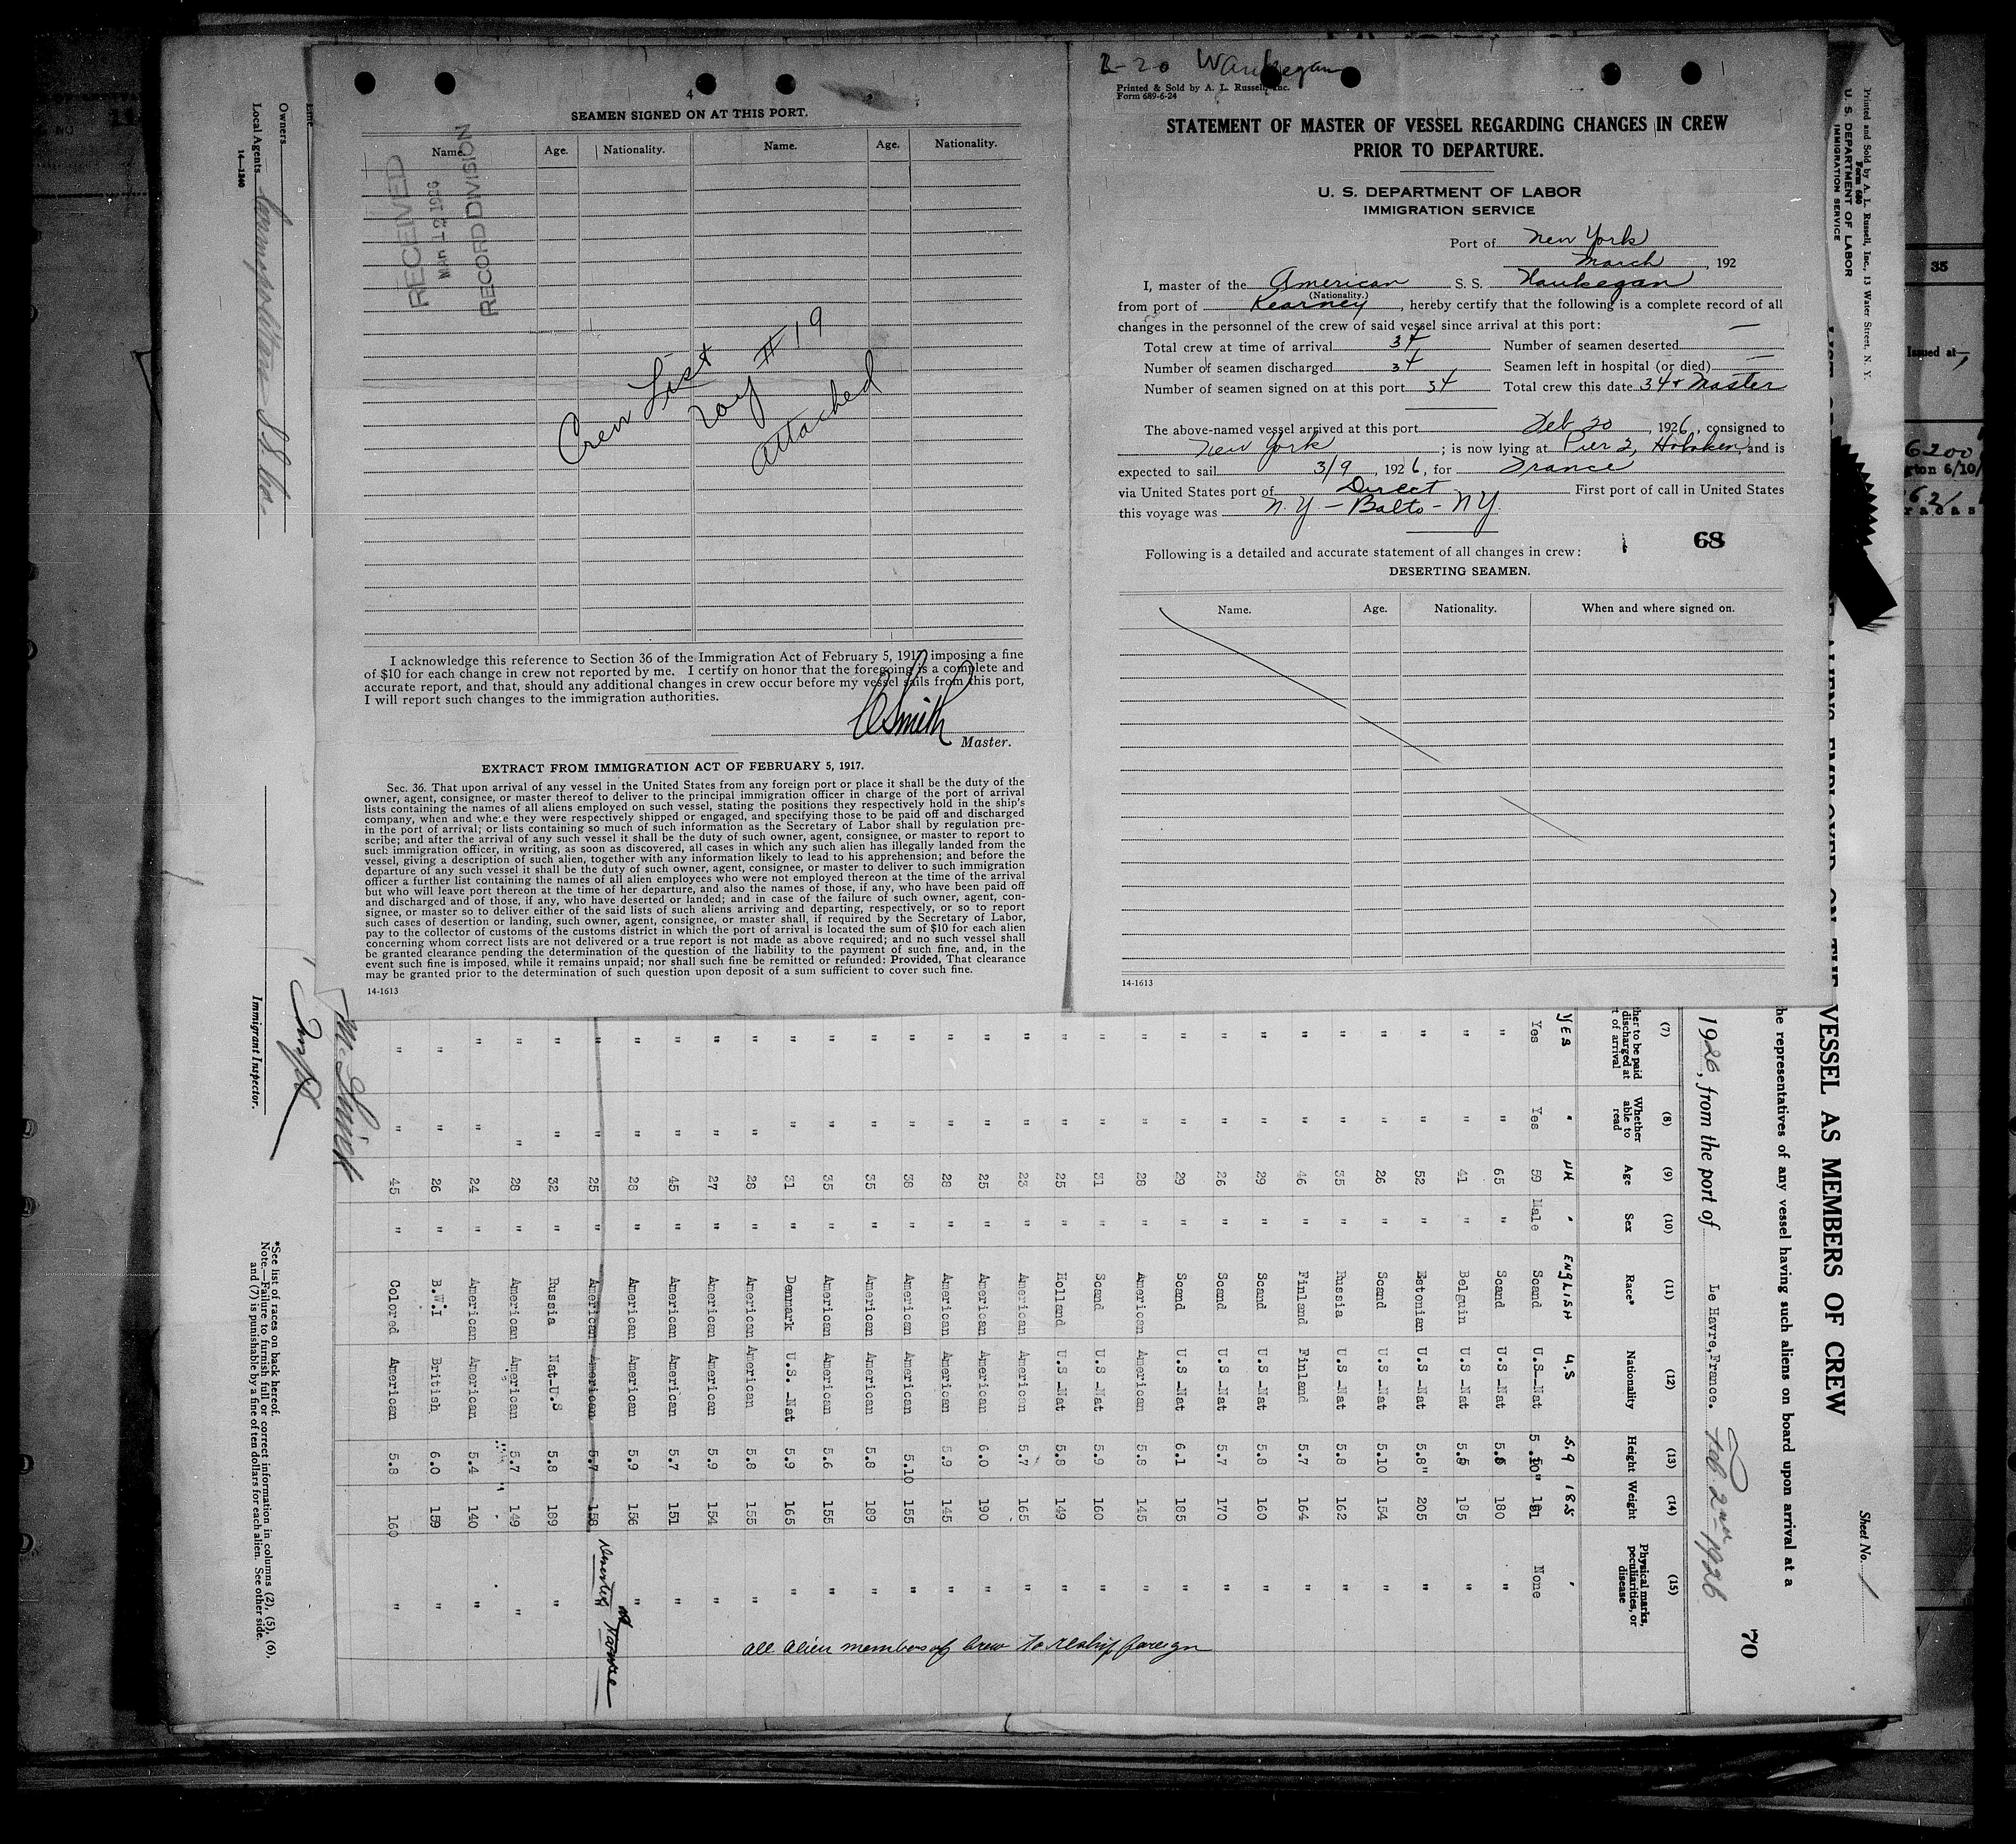 4
SEAMEN SIGNED ON AT THIS PORT.
Name. Age. Nationality. Name. Age. Nationality.
RECEIVED
MAR 12 1926
RECORD DIVISION
Crew List
Voy #19
attached
I acknowledge this reference to Section 36 of the Immigration Act of February 5, 1917, imposing a fine
of $10 for each change in crew not reported by me. I certify on honor that the foregoing is a complete and
accurate report, and that, should any additional changes in crew occur before my vessel sails from this port,
I will report such changes to the immigration authorities.
CSmith
Master.
EXTRACT FROM IMMIGRATION ACT OF FEBRUARY 5, 1917.
Sec. 36. That upon arrival of any vessel in the United States from any foreign port or place it shall be the duty of the
owner, agent, consignee, or master thereof to deliver to the principal immigration officer in charge of the port of arrival
lists containing the names of all aliens employed on such vessel, stating the positions they respectively hold in the ship's
company, when and where they were respectively shipped or engaged, and specifying those to be paid off and discharged
in the port of arrival; or lists containing so much of such information as the Secretary of Labor shall by regulation pre-
scribe; and after the arrival of any such vessel it shall be the duty of such owner, agent, consignee, or master to report to
such immigration officer, in writing, as soon as discovered, all cases in which any such alien has illegally landed from the
vessel, giving a description of such alien, together with any information likely to lead to his apprehension; and before the
departure of any such vessel it shall be the duty of such owner, agent, consignee, or master to deliver to such immigration
officer a further list containing the names of all alien employees who were not employed thereon at the time of the arrival
but who will leave port thereon at the time of her departure, and also the names of those, if any, who have been paid off
and discharged and of those, if any, who have deserted or landed; and in case of the failure of such owner, agent, con-
signee, or master so to deliver either of the said lists of such aliens arriving and departing, respectively, or so to report
such cases of desertion or landing, such owner, agent, consignee, or master shall, if required by the Secretary of Labor,
pay to the collector of customs of the customs district in which the port of arrival is located the sum of $10 for each alien
concerning whom correct lists are not delivered or a true report is not made as above required; and no such vessel shall
be granted clearance pending the determination of the question of the liability to the payment of such fine, and, in the
event such fine is imposed, while it remains unpaid; nor shall such fine be remitted or refunded: Provided, That clearance
may be granted prior to the determination of such question upon deposit of a sum sufficient to cover such fine.
14-1613
2-20 Waukegan
Printed & Sold by A. L. Russell, Inc.
Form 689-6-24
STATEMENT OF MASTER OF VESSEL REGARDING CHANGES IN CREW
PRIOR TO DEPARTURE.
U. S. DEPARTMENT OF LABOR
IMMIGRATION SERVICE
Port of New York
March , 192
I, master of the American S. S. Waukegan
(Nationality.)
from port of Kearney, hereby certify that the following is a complete record of all
changes in the personnel of the crew of said vessel since arrival at this port:
Total crew at time of arrival 34 Number of seamen deserted —
Number of seamen discharged 34 Seamen left in hospital (or died) —
Number of seamen signed on at this port 34 Total crew this date 34 + Master
The above-named vessel arrived at this port Feb 20, 1926, consigned to
New York; is now lying at Pier 2, Hoboken and is
expected to sail 3/9, 1926, for France
via United States port of Direct First port of call in United States
this voyage was N.Y – Balto – NY.
68
Following is a detailed and accurate statement of all changes in crew:
DESERTING SEAMEN.
Name. Age. Nationality. When and where signed on.
14-1613
Printed and Sold by A. L. Russell, Inc., 13 Water Street, N. Y.
Form 680
U. S. DEPARTMENT OF LABOR
IMMIGRATION SERVICE
Sheet No. 1
VESSEL AS MEMBERS OF CREW
he representatives of any vessel having such aliens on board upon arrival at a
70
1926, from the port of Le Havre, France. Feb 2nd 1926
(7) (8) (9) (10) (11) (12) (13) (14) (15)
her to be paid discharged at t of arrival
Whether able to read
Age
Sex
Race*
Nationality
Height
Weight
Physical marks, peculiarities, or disease
YES " 44 " ENGLISH U.S 5.9 185 "
Yes Yes 59 Male Scand U.S--Nat 5.10" 181 None
" " 65 " Scand U.S -Nat 5.8 180 "
" " 41 " Belguin U.S -Nat 5.8 185 "
" " 52 " Estonian U.S -Nat 5.8" 205 "
" " 26 " Scand U.S -Nat 5.10 154 "
" " 35 " Russia U.S -Nat 5.8 162 "
" " 46 " Finland Finland 5.7 164 "
" " 29 " Scand U.S -Nat 5.8 160 "
" " 26 " Scand U.S -Nat 5.7 170 "
" " 29 " Scand U.S -Nat 6.1 185 "
" " 28 " American American 5.8 145 "
" " 31 " Scand U.S -Nat 5.9 160 "
" " 25 " Holland U.S -Nat 5.8 149 "
" " 23 " American American 5.7 165 "
" " 25 " American American 6.0 190 "
" " 28 " American American 5.9 145 "
" " 38 " American American 5.10 155 "
" " 35 " American American 5.8 189 "
" " 35 " American American 5.6 155 "
" " 31 " Denmark U.S. -Nat 5.9 165 "
" " 28 " American American 5.8 155 "
" " 27 " American American 5.9 154 "
" " 45 " American American 5.7 151 "
" " 28 " American American 5.9 156 "
" " 25 " American American 5.7 158 " Deserted at Havre
" " 32 " Russia Nat-U.S 5.8 189 "
" " 28 " American American 5.7 149 "
" " 24 " American American 5.4 140 "
" " 26 " B.W.I British 6.0 159 "
" " 45 " Colored American 5.8 160 "
all alien members of crew to reship foreign
Line
Owners
Local Agents Cosmopolitan S.S. Co.
14—1240
Immigrant Inspector.
*See list of races on back hereof.
Note.—Failure to furnish full or correct information in columns (2), (5), (6),
and (7) is punishable by a fine of ten dollars for each alien. See other side.
35
Issued at
6200
gton 6/10/